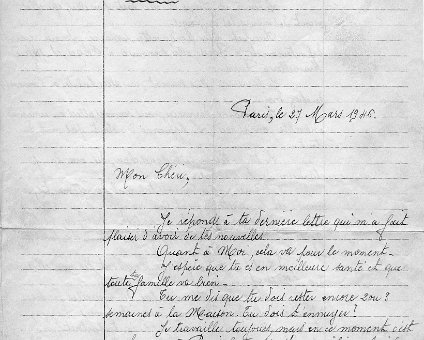 Paris, le 27 Mars 1946.
Mon Chéri,
Je reponds à ta dernière lettre qui m'a fait
plaisir d'avoir de tes nouvelles.
Quant à Moi, cela va pour le moment.
J'espère que tu es en meilleure santé et que
toute ta famille va bien.
Tu me dis que tu dois rester encore 2 ou 3
semaines à la Maison. Tu dois t'ennuyer!
Je travaille toujours, mais en ce moment c'est